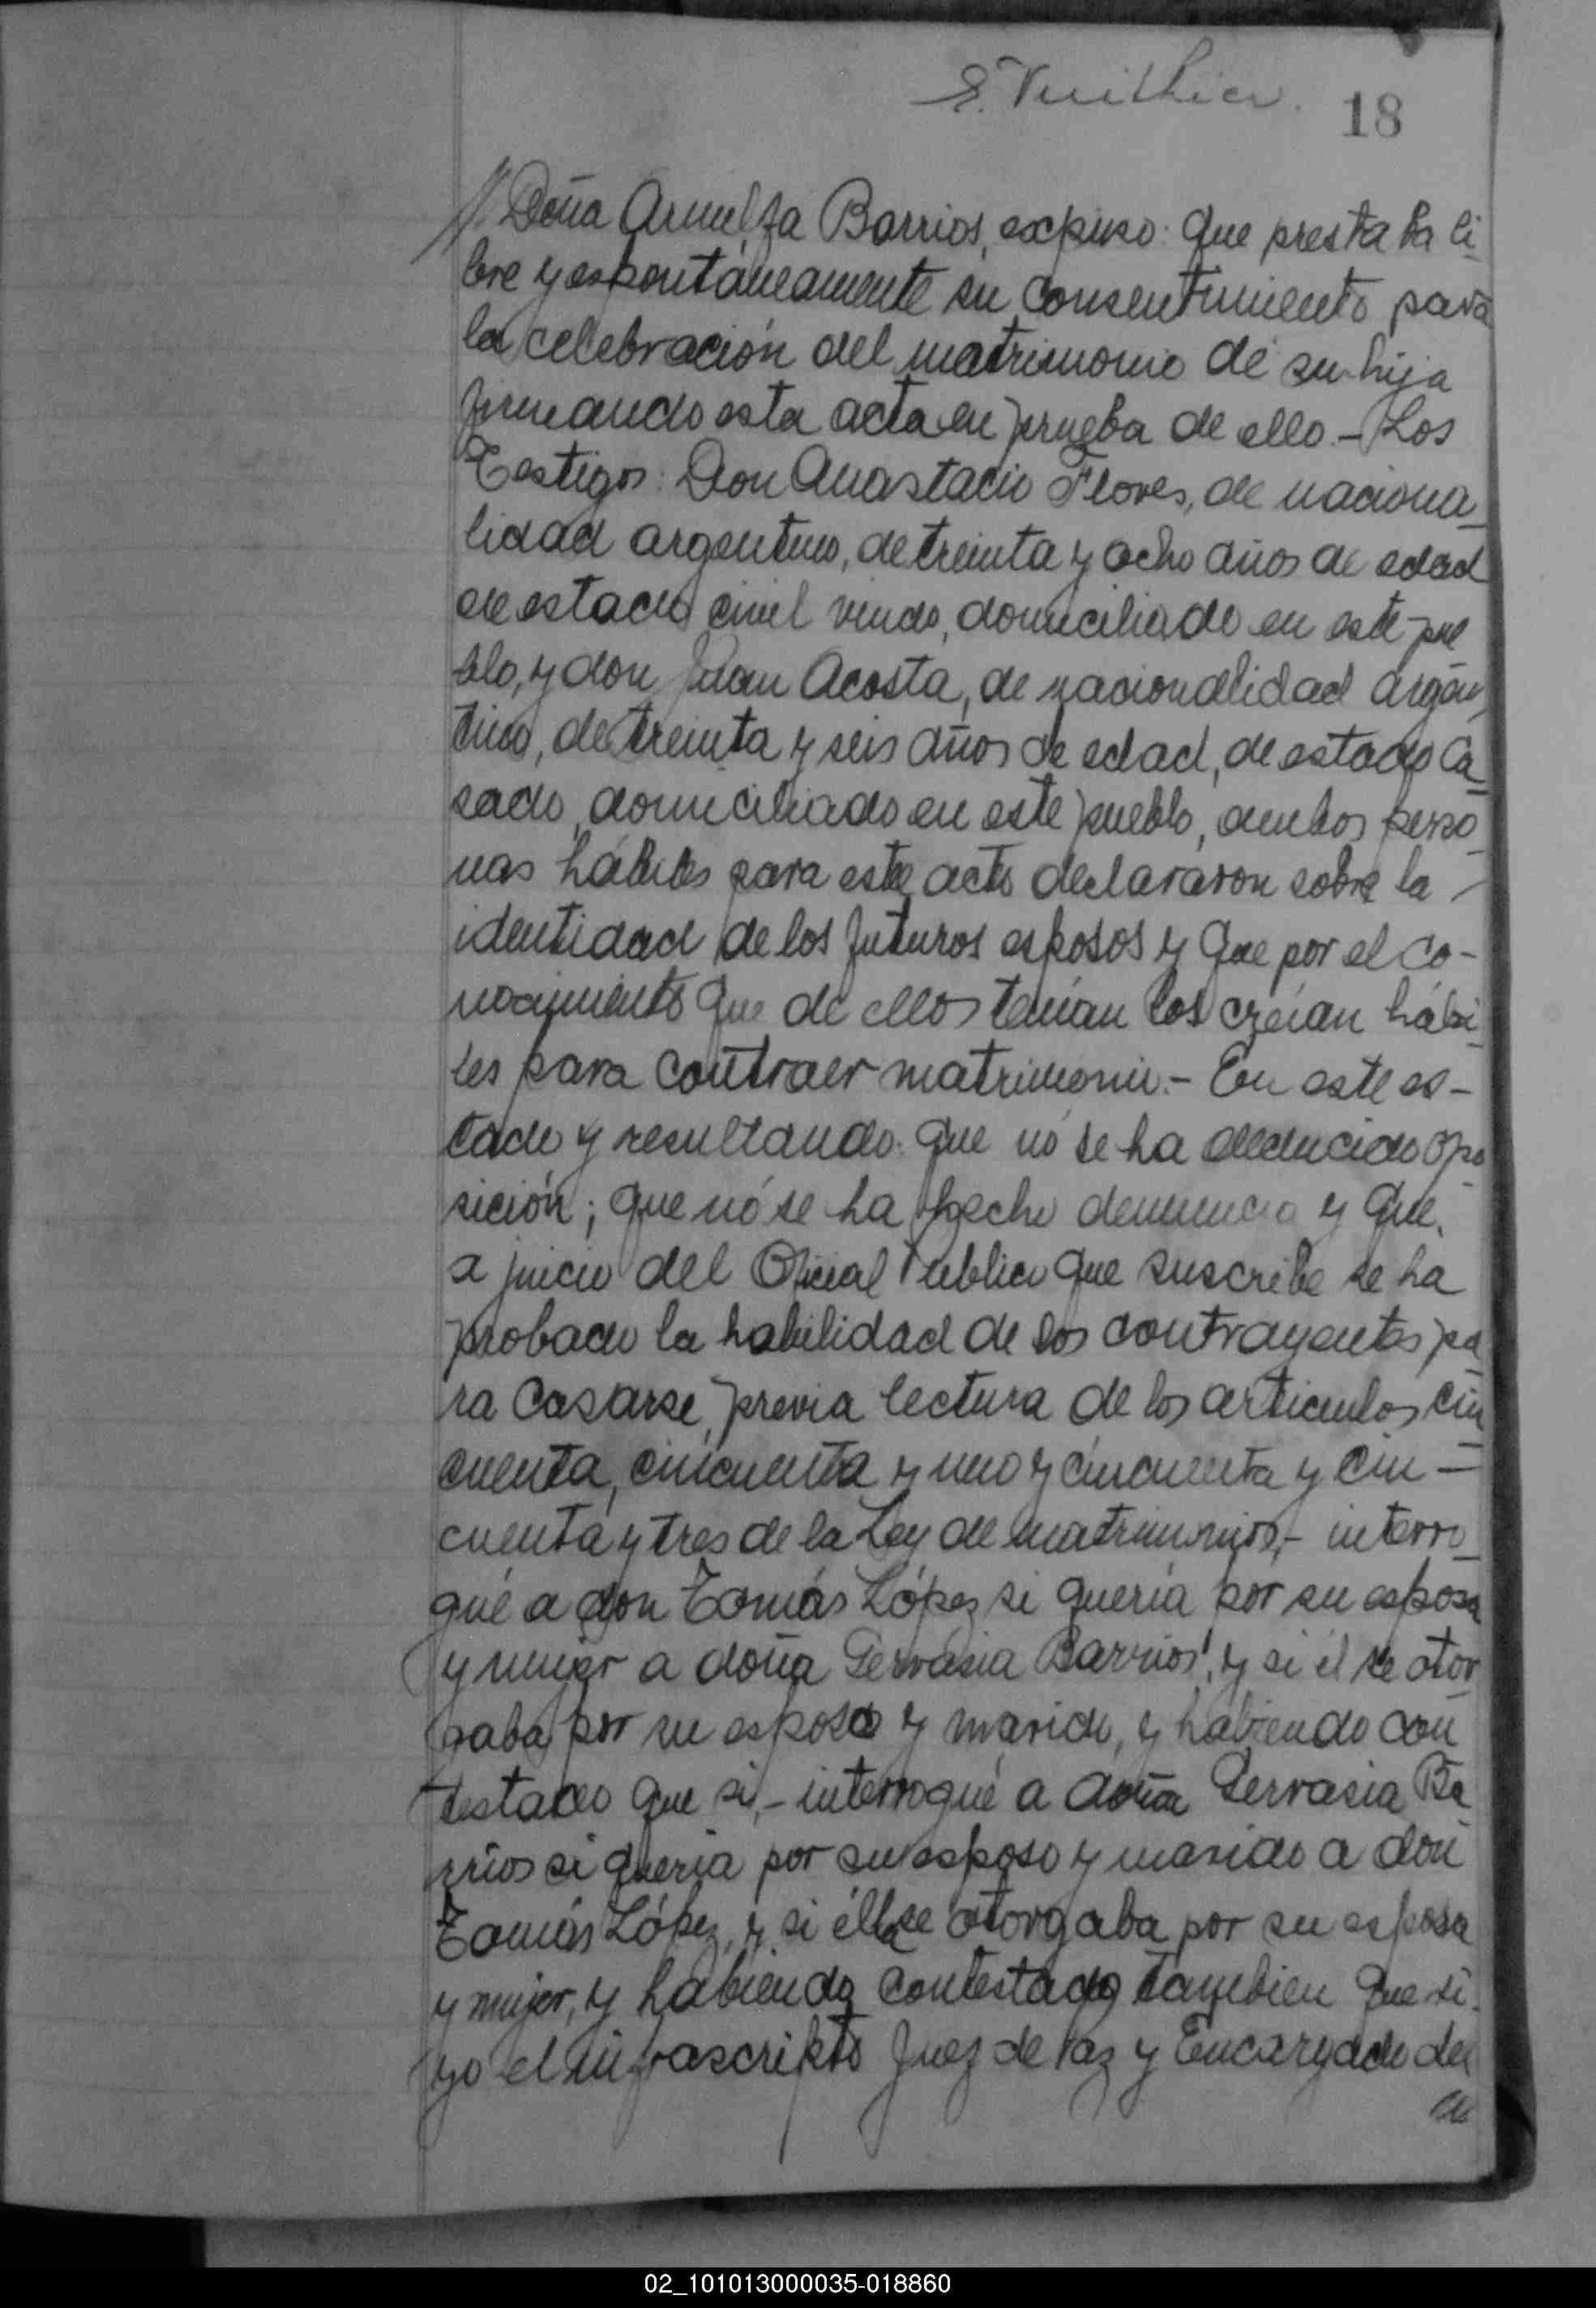 E. Vuithier.
18
// Doña Armelfa Barrios, expuso: que prestaba li-
bre y espontáneamente su consentimiento para
la celebración del matrimonio de su hija
firmando esta acta en prueba de ello.- Los
Testigos: Don Anastacio Flores, de naciona-
lidad argentino, de treinta y ocho años de edad
de estado civil viudo, domiciliado en este pue
blo, y don Juan Acosta, de nacionalidad argen
tino, de treinta y seis años de edad, de estado ca-
sado, domiciliado en este pueblo, ambos perso-
nas hábiles para este acto declararon sobre la
identidad de los futuros esposos y que por el co-
nocimiento que de ellos tenían los creían hábi-
les para contraer matrimonio.- En este es-
tado y resultando: que nó se ha deducido opo-
sición; que nó se ha hecho denuncia y que,
a juicio del Oficial Público que suscribe se ha
probado la habilidad de los contrayentes pa-
ra casarse, previa lectura de los articulos cin-
cuenta, cincuenta y uno y cincuenta y cin-
cuenta y tres de la Ley de matrimonio,- interro-
gué a don Tomás López si quería por su esposa
y mujer a doña Gervasia Barrios, y si él se otor-
gaba por su esposo y marido, y habiendo con
testado que si,- interrogué a doña Gervasia Ba
rrios si quería por su esposo y marido a don
Tomás López, y si élla se otorgaba por su esposa
y mujer, y habiendo contestado tambien que si.
yo el infrascripto Juez de Paz y Encargado del